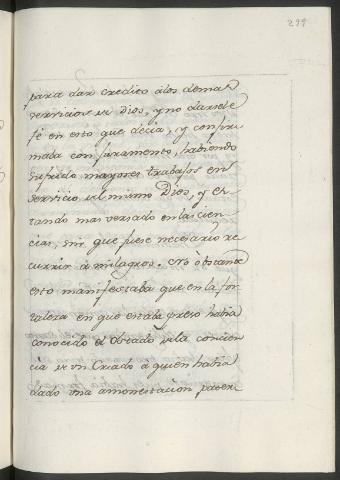 299
para dar credito álos demas
servicios de Dios, y no darsele
fé en esto que decia, y confir
maba con juramento, habiendo
sufrido mayores trabajos en
servicio del mismo Dios, y es
tando mas versado en las cien
cias, sin que fuese necesario re
currir á milagros. No obstante
esto manifestaba que en la for
taleza en que estaba preso habia
conocido el estado de la concien
cia de un Criado á quien habia
dado una amonestacion pater